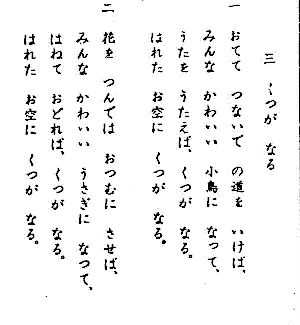 三 くつが なる
一 おてて つないで の道を いけば、
みんな かわいい 小鳥に なって、
うたを うたえば、くつが なる。
はれた お空に くつが なる。
二 花を つんでは おつむに させば、
みんな かわいい うさぎに なって、
はねて おどれば、くつが なる。
はれた お空に くつが なる。